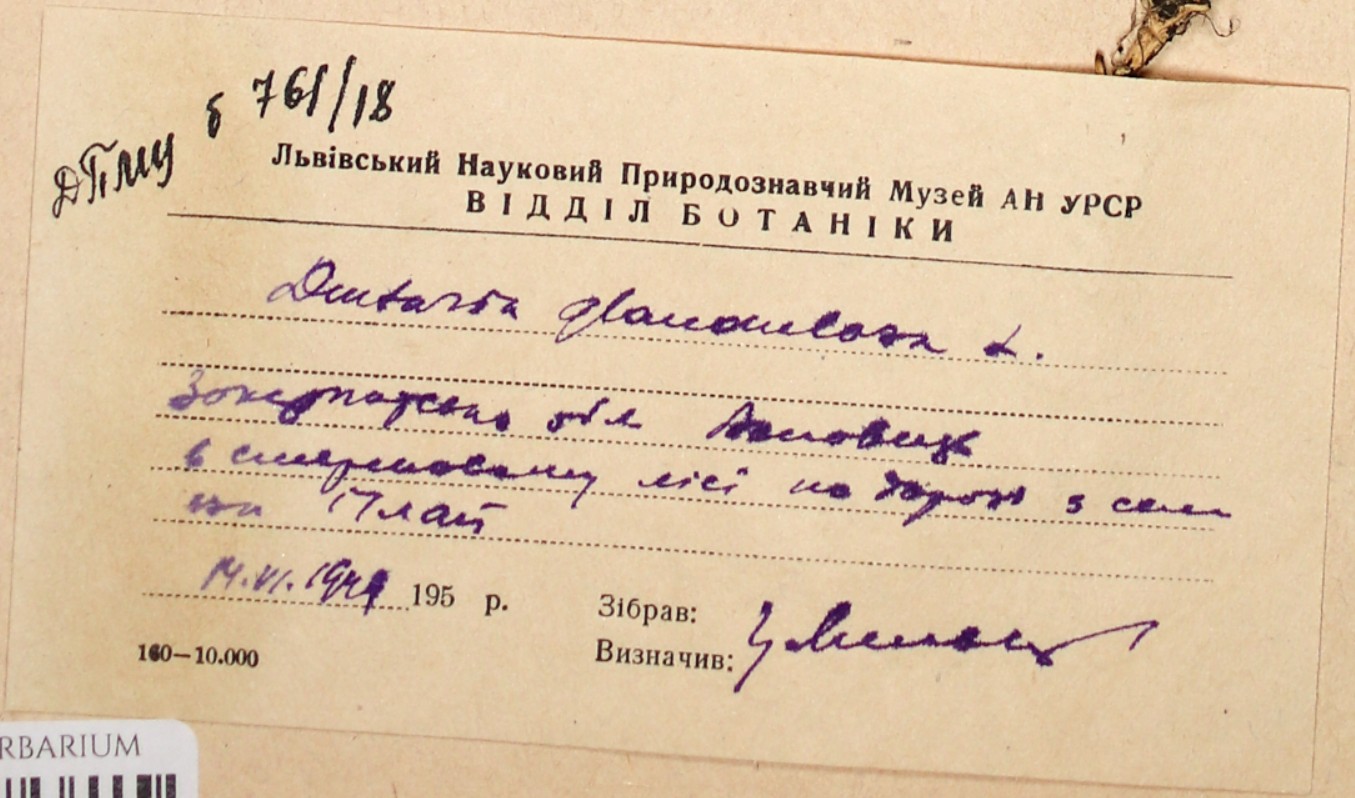 ДПМЦ б 761/18
Львівський Науковий Природознавчий Музей АН УРСР
ВІДДІЛ БОТАНІКИ
Dentaria glandulosa L.
Закарпатська обл
в смерековому лісі на дорозі з села
на Плай
14.VI. 195 р.
Зібрав:
Визначив:
160—10.000
RBARIUM